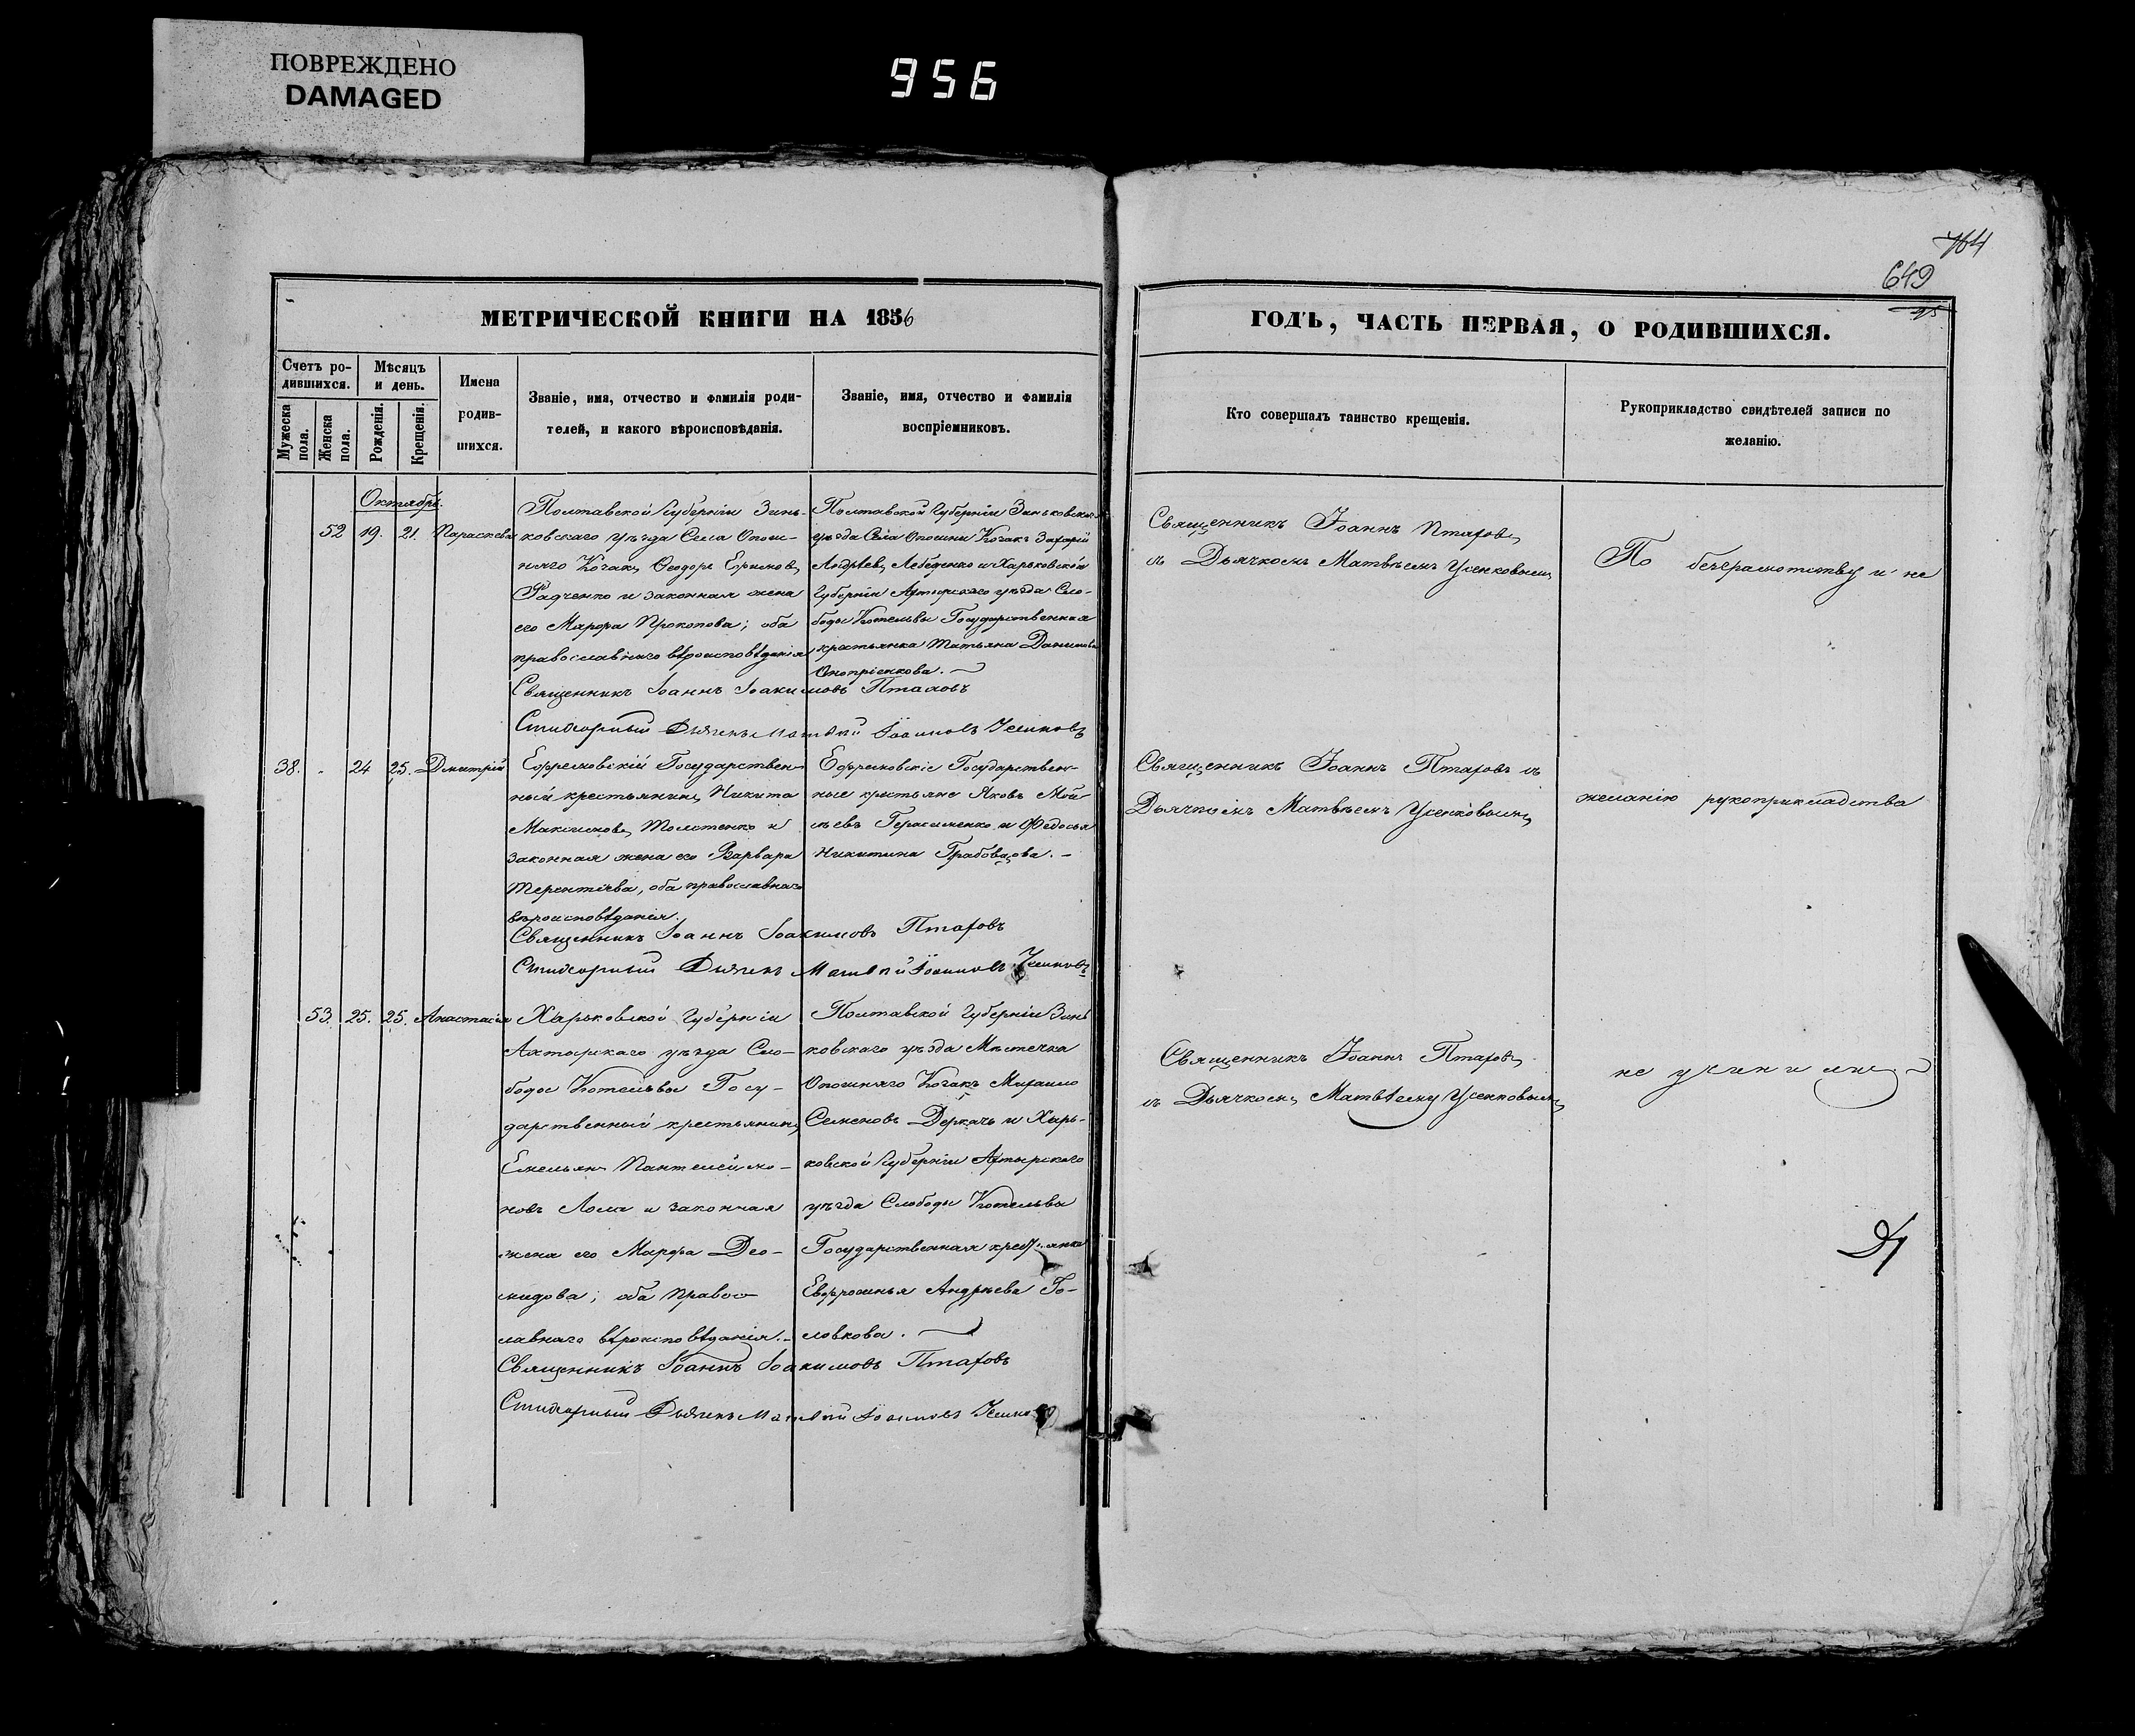 ПОВРЕЖДЕНО
DAMAGED
956
764
649
МЕТРИЧЕСКОЙ КНИГИ НА 1856
ГОДЪ, ЧАСТЬ ПЕРВАЯ, О РОДИВШИХСЯ.
Счетъ ро-
дившихся.
Мѣсяцъ
и день.
Мужеска
пола.
Женска
пола.
Рожденія.
Крещенія.
Имена
родив-
шихся.
Званіе, имя, отчество и фамилія роди-
телей, и какого вѣроисповѣданія.
Званіе, имя, отчество и фамилія
воспріемниковъ.
Кто совершалъ таинство крещенія.
Рукоприкладство свидѣтелей записи по
желанію.
Октябрь.
52 19. 21. Параскева
Полтавской Губерніи Зинь-
ковскаго уѣзда Села Опош-
няго Козакъ Ѳеодоръ Ефимовъ
Радченко и законная жена
его Марфа Прокопова; оба
православнаго вѣроисповѣданія
Полтавской Губерніи Зиньковскаго
уѣзда Села Опошни Козакъ Захарій
Андреевъ Лебеденко и Харьковской
Губерніи Ахтырскаго уѣзда Сло-
боды Котельвы Государственная
крестьянка Татьяна Данилова
Оноприенкова.
Священникъ Іоаннъ Іоакимовъ Птаховъ
Стихарный Дьячекъ Матвѣй Іоанновъ Усенковъ
Священникъ Іоаннъ Птаховъ
съ Дьячкомъ Матвѣемъ Усенковымъ
По безграмотству и не
38. 24 25. Дмитрій
Ефремовскій Государствен-
ный крестьянинъ Никита
Максимовъ Толстенко и
законная жена его Варвара
Терентіева, оба православнаго
вѣроисповѣданія.
Ефремовскіе Государствен-
ные крестьяне Яковъ Мои-
сѣевъ Герасименко и Федосья
Никитина Грабовцова.
Священникъ Іоаннъ Іоакимовъ Птаховъ
Стихарный Дьячекъ Матвѣй Іоанновъ Усенковъ
Священникъ Іоаннъ Птаховъ съ
Дьячкомъ Матвѣемъ Усенковымъ
желанію рукоприкладства
53. 25. 25. Анастасія
Харьковской Губерніи
Ахтырскаго уѣзда Сло-
боды Котельвы Госу-
дарственный крестьянинъ
Емельянъ Пантелеймо-
новъ Лома и законная
жена его Марфа Део-
мидова; оба правос-
лавнаго вѣроисповѣданія.
Полтавской Губерніи Зинь
ковскаго уѣзда Мѣстечка
Опошняго Козакъ Михаило
Семеновъ Деркачь и Харь-
ковской Губерніи Ахтырскаго
уѣзда Слободы Котельвы
Государственная крестьянка
Евфросинья Андреева Го-
ловкова.
Священникъ Іоаннъ Іоакимовъ Птаховъ
Стихарный Дьячекъ Матвѣй Іоанновъ
Священникъ Іоаннъ Птаховъ
съ Дьячкомъ Матвѣемъ Усенковымъ
не учинили